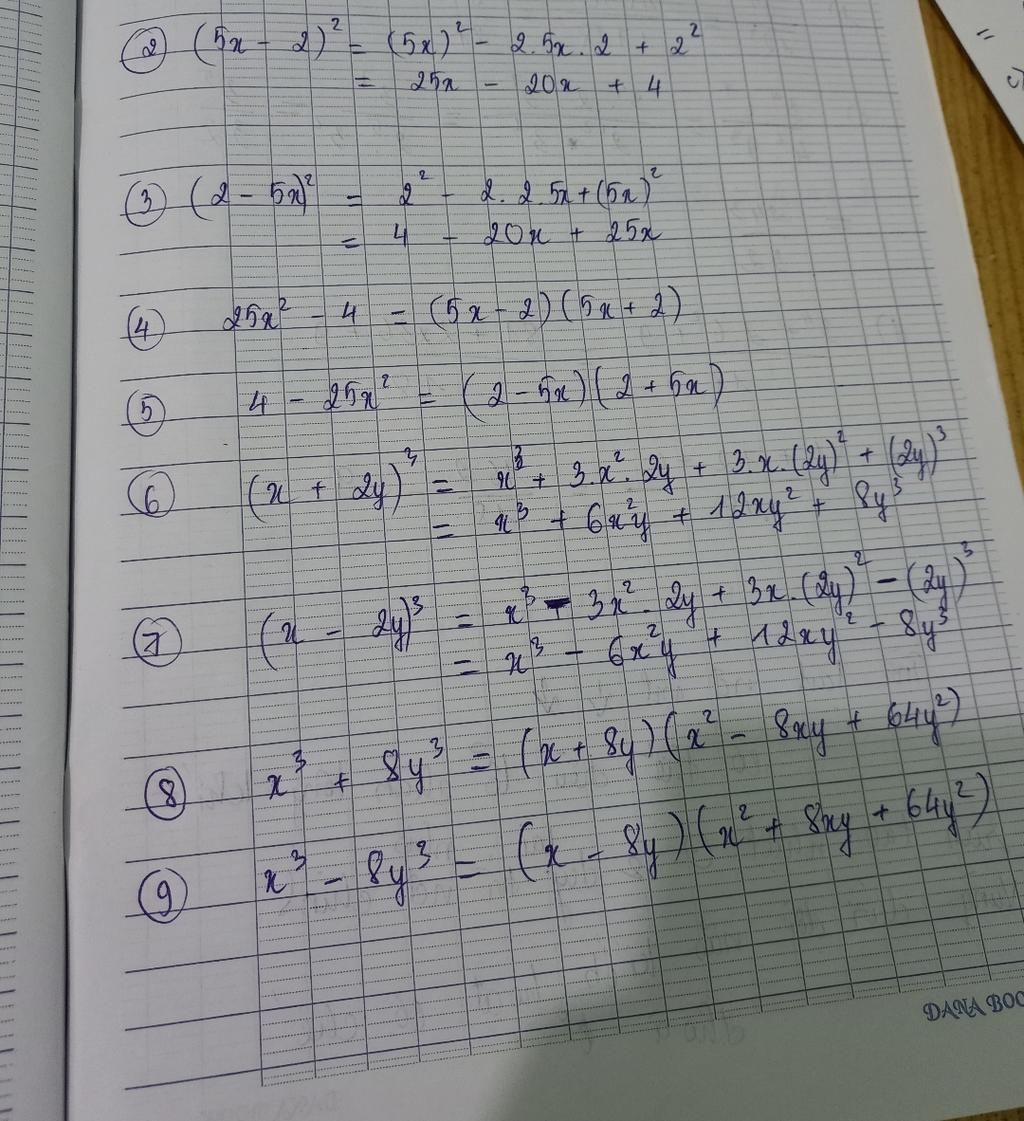 ② (5x - 2)² = (5x)² - 2.5x.2 + 2²
= 25x - 20x + 4
③ (2 - 5x)² = 2² - 2.2.5x + (5x)²
= 4 - 20x + 25x
④ 25x² - 4 = (5x - 2)(5x + 2)
⑤ 4 - 25x² = (2 - 5x)(2 + 5x)
⑥ (x + 2y)³ = x³ + 3.x².2y + 3.x.(2y)² + (2y)³
= x³ + 6x²y + 12xy² + 8y³
⑦ (x - 2y)³ = x³ - 3x².2y + 3x.(2y)² - (2y)³
= x³ - 6x²y + 12xy² - 8y³
⑧ x³ + 8y³ = (x + 8y)(x² - 8xy + 64y²)
⑨ x³ - 8y³ = (x - 8y)(x² + 8xy + 64y²)